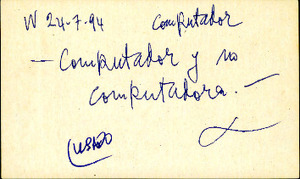 W 24-7-94 Computador
- Computador y no
computadora. -